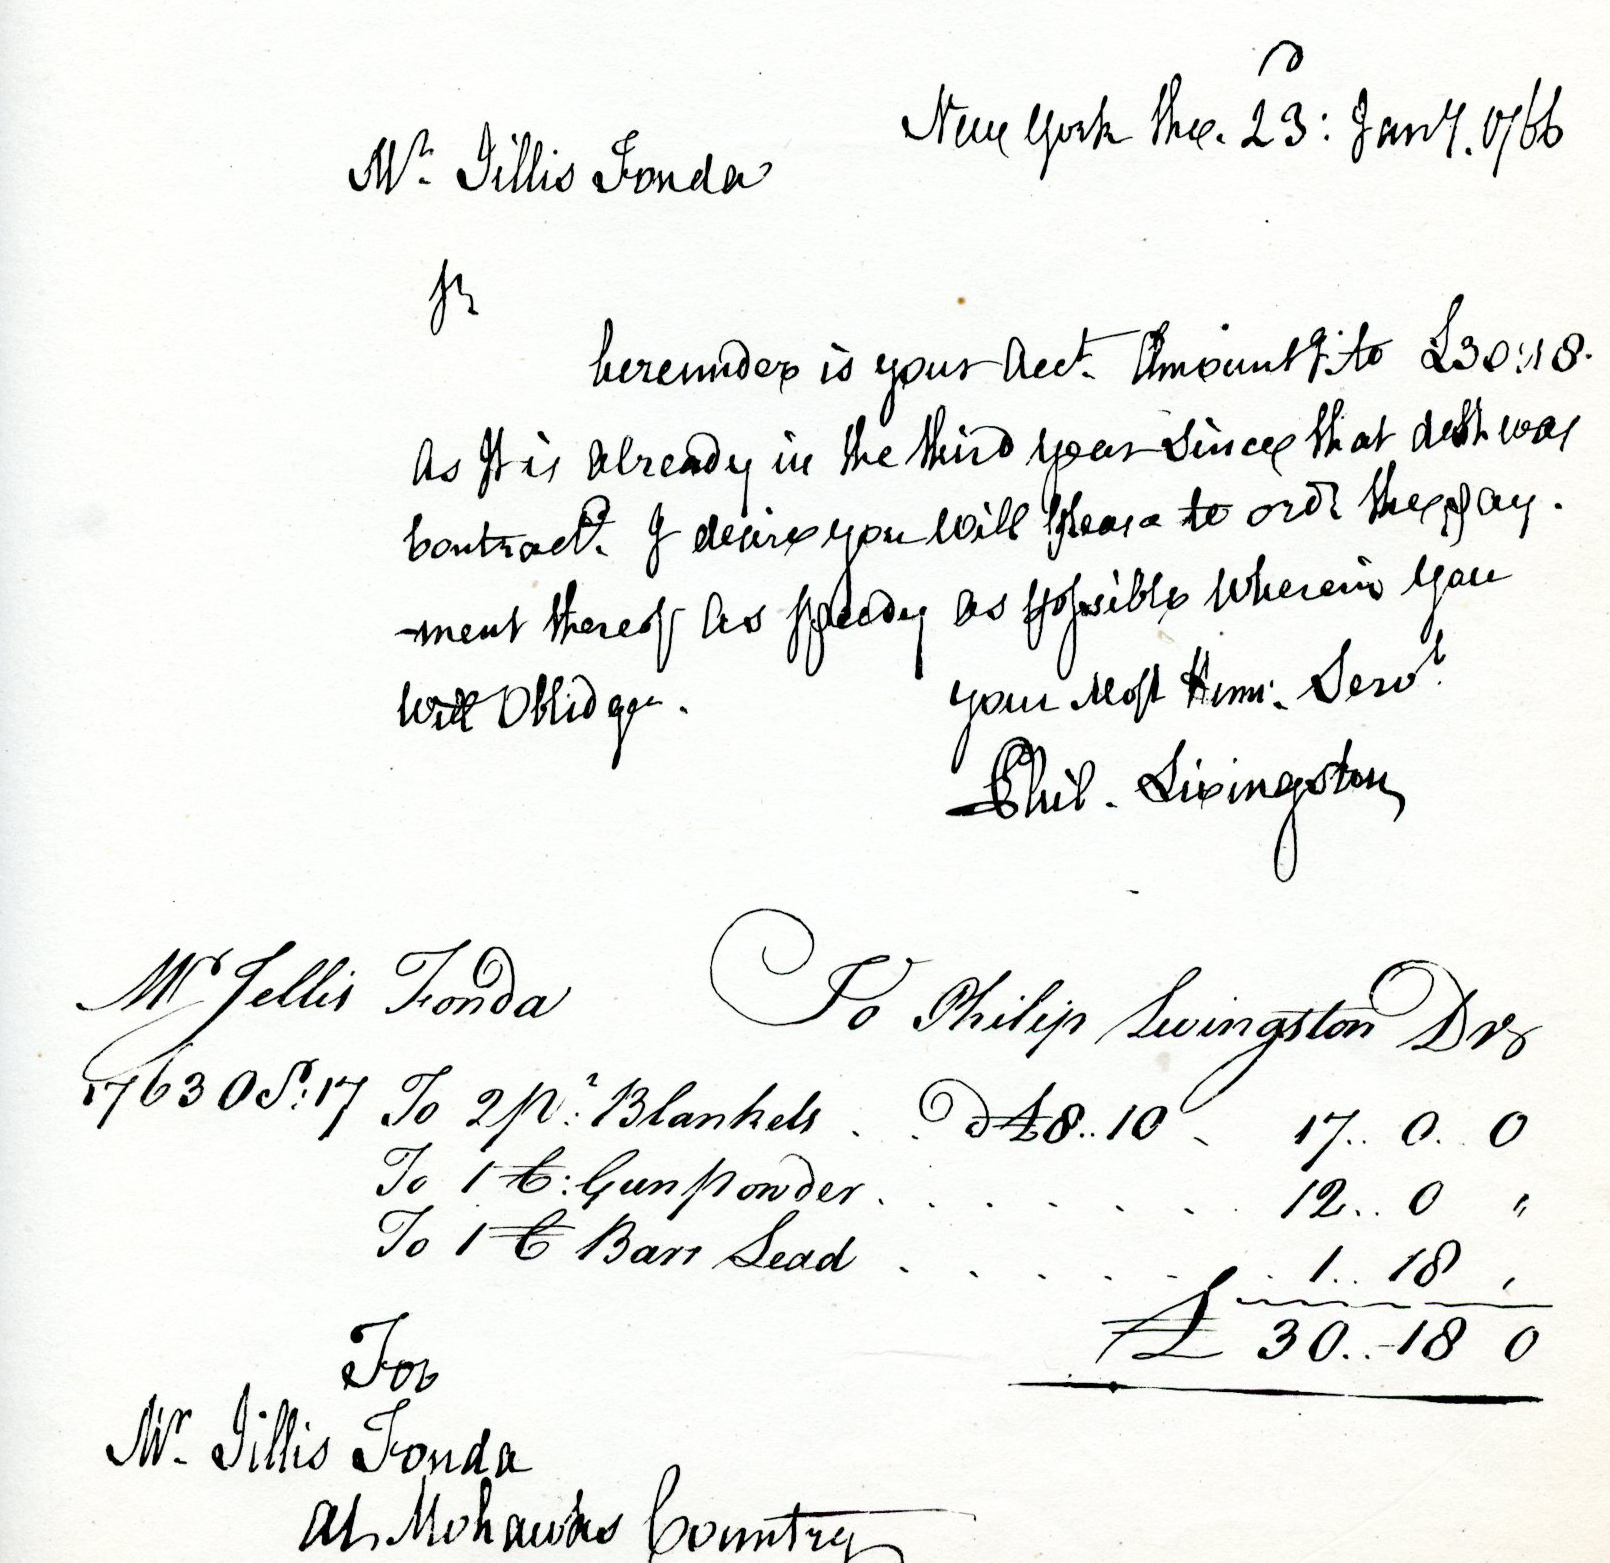 New York the. 23: Jany. 1766
Mr. Jillis Fonda
Sr
hereunder is your Acct. Amountg: to £30:18.
As It is already in the third year Since that debt was
Contract. I desire you Will please to ordr the pay.
-ment thereof As speedy as possible Wherein you
Will Oblidge.
your Most Hum: Servt.
Phil. Livingston
Mr Jellis Fonda To Philip Livingston Dr
1763 17 To 2 pr: Blankets . . £8..10 - 17.. 0.. 0
To 1 C: Gun Powder . . . . . . . 12.. 0 "
To 1 C Barr Lead . . . . . . 1.. 18 "
£ 30..18 0
For
Mr. Jillis Fonda
At Mohawks Country